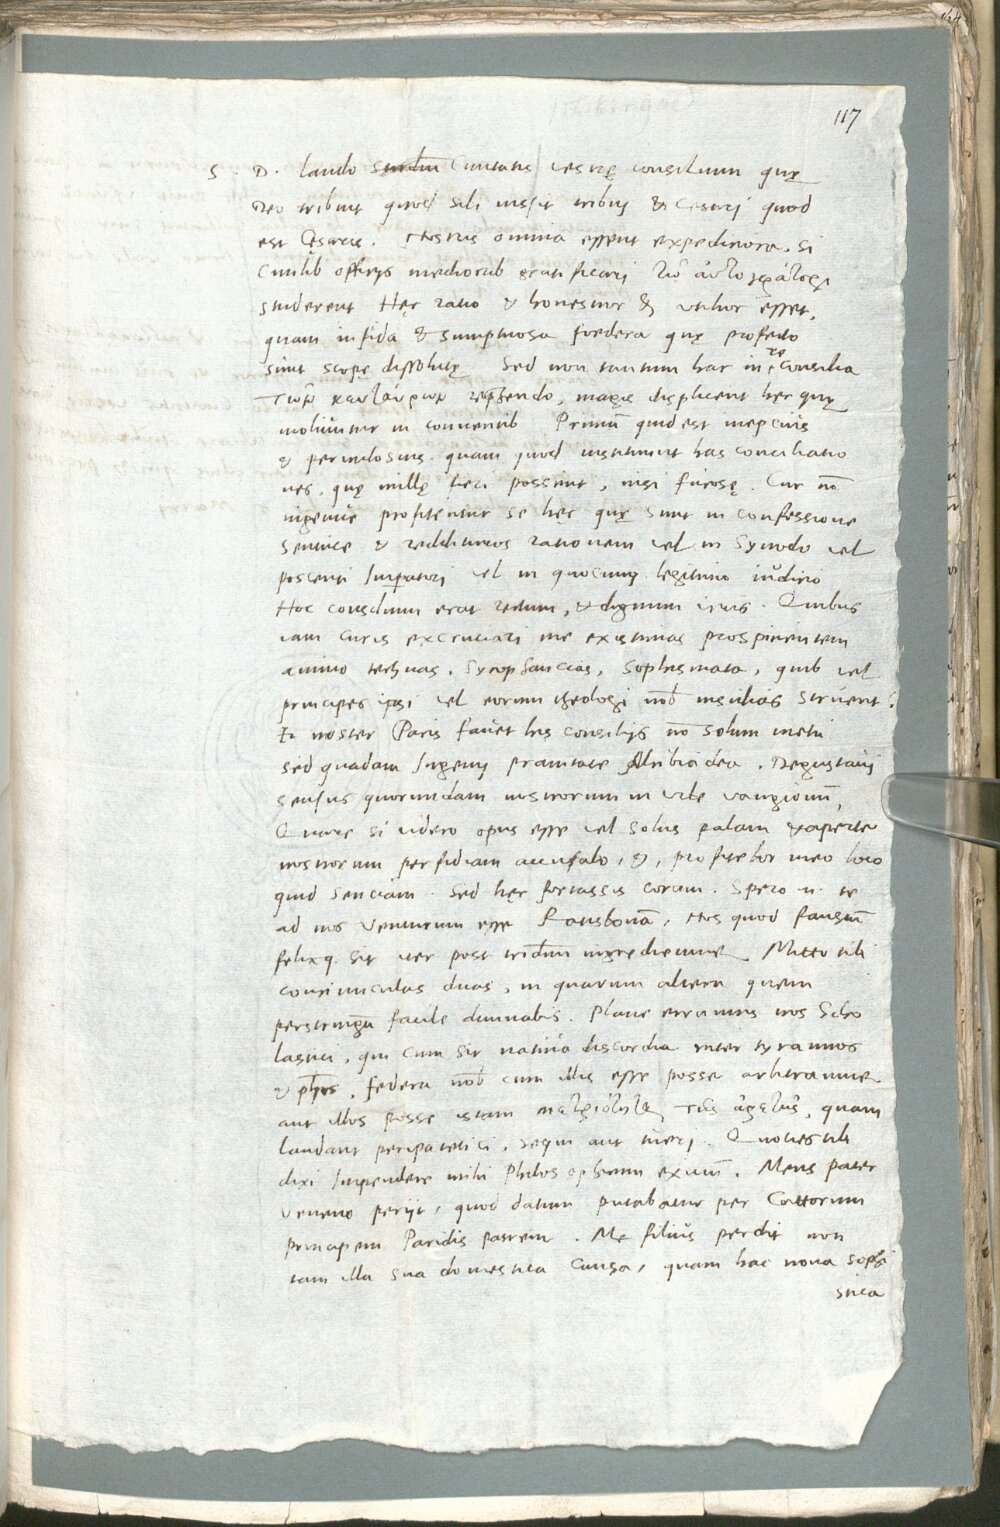 117
S. D. laudo Ciuitatis vestrę consilium quę
Deo tribuit quod sibi iussit tribuj & Cęsarj quod
est Cęsaris. Nostris omnia essent expeditiora, si
Ciuilib officijs mediocrib gratificarj τῷ ἀυτοκράτορι
studerent Hęc ratio & honestior & vtilior esset,
quam infida & sumptuosa foedera quę profecto
sunt scopę dissolutę Sed non tantum hac in re consilia
τῶν κενταύρων reprehendo, magis displicent hec quę
moliuntur in conuentib Primū quid est ineptius
& periculosius. quam quod instituunt has conciliatio
nes, quę nullę fieri possunt, nisi fucosę. Cur nō
ingenue profitentur se hęc quę sunt in confessione
sentire & reddituros rationem vel in Synodo vel
poscenti Imperatori vel in quocunq legitimo iudicio
Hoc consilium erat rectum, & dignum viris. Quibus
iam curis excruciari me existimas prospicientem
animo technas, Sycophancias, Sophismata, quib vel
principes ipsi vel eorum theologi nob insidias struent?
Et noster Paris fauet his consilijs nō solum metu
sed quadam Ingenij prauitate Alcibiadea. Degustauj
sensus quorundam nostrorum in vrbe vangionū,
Quare si videro opus esse vel solus palam & aperte
nostrorum perfidiam accusabo, &, profitebor meo loco
quid senciam. Sed hęc fortassis coram. Spero n. te
ad nos venturum esse Ratisbonā, Nos quod faustū
felixq. sit iter post tridūm ingrediemur Mitto tibi
conciunculas duas, in quarum altera quem
perstringā facile diuinabis. Plane erramus nos Scho
lastici, qui cum sit natiua discordia inter tyrannos
& phos, federa nob cum illis esse posse arbitramur
aut illos posse istam μετριότητα τῆς ἀρετῆς, quam
laudant peripatetici, sequi aut tuerj. Quoties tibi
dixi Impendere mihi Philosophorum exitiū. Meus pater
veneno perijt, quod datum putabatur per Cattorum
principem Paridis patrem. Me filius perdit non
tam illa sua domestica causa, quam hac noua sophi
stica